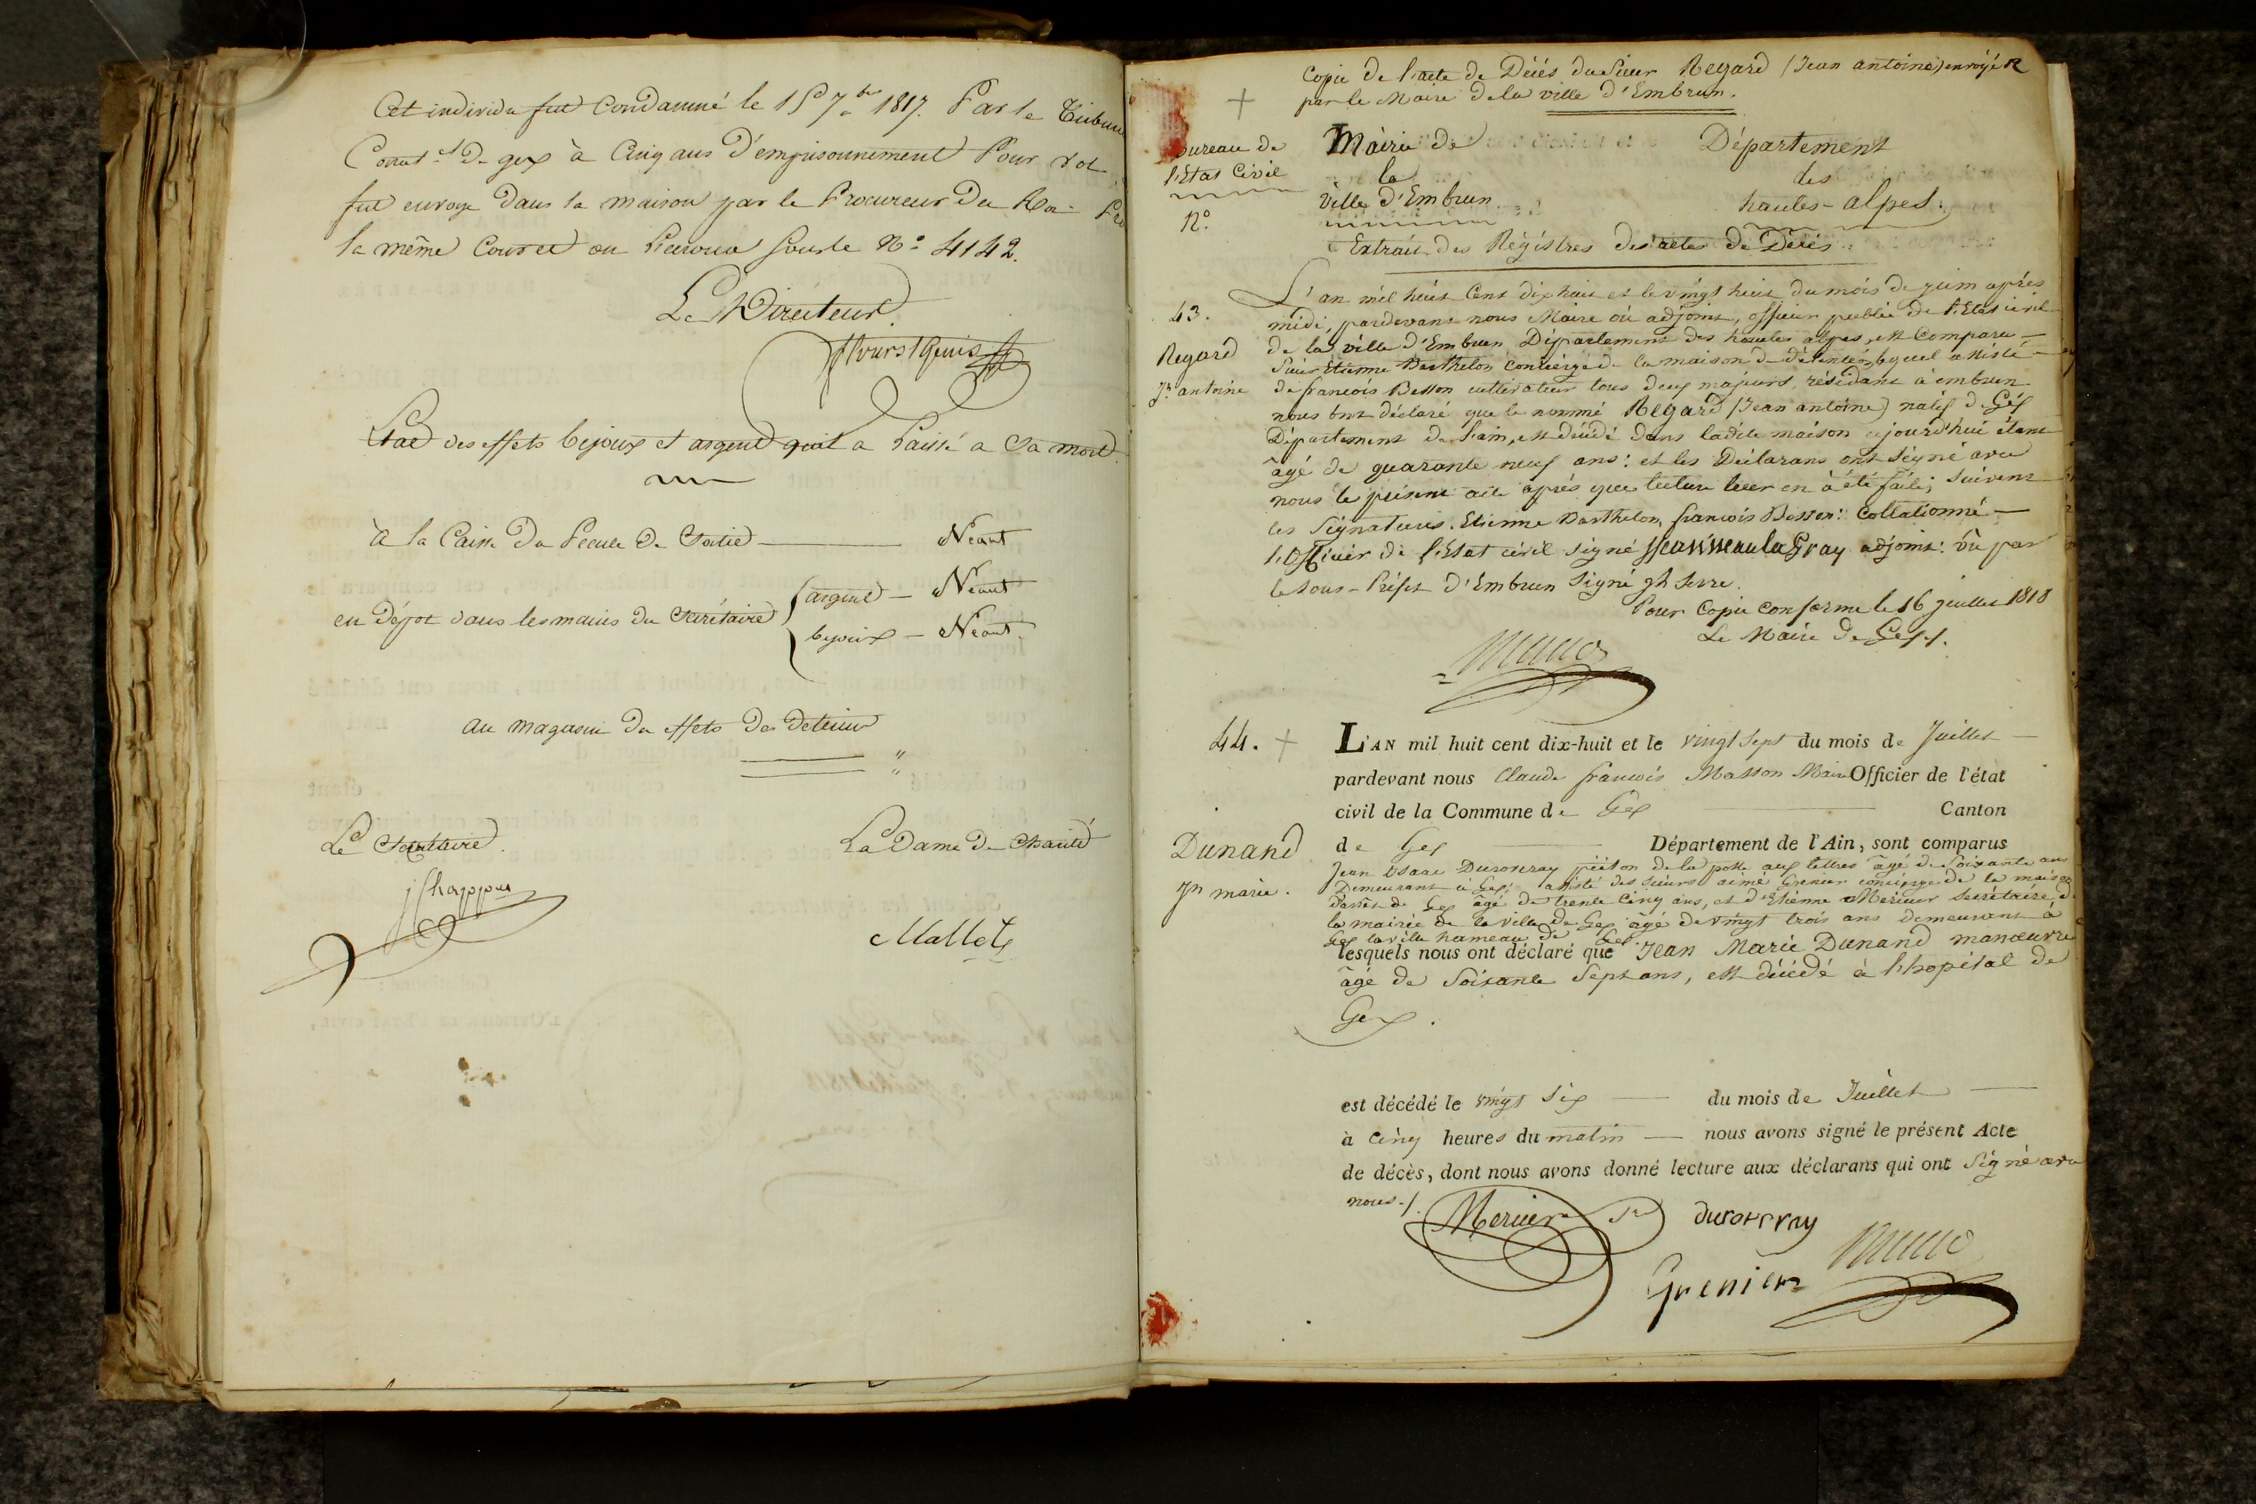 Cet individu fut Condamné le 15 7bre 1817. Par le Tribun
Corect.el De gex à Cinq ans D'emprisonnement Pour vol
fut envoyé Dans la maison par le Procureur Du Roi
la même Cour et on l'ecroua sous le N° 4142.
Le Directeur
Etat des effets bijoux et argent qu'il a laissé a Sa mort
à la Caisse Du Pecule De Sortie Néant
en Dépot dans les mains du Secrétaire argent - Néant
bijoux - Néant.
au magasin Des effets Des Detenus "
"
Le Secrétaire.
La Dame De Charité
Chappus
Mallet
Copie De l'acte De Décés du Sieur Regard (Jean antoine) envoyée
par le Maire De la ville d'Embrun.
Bureau de
l'Etat Civil
N°.
Mairie De
la
ville d'Embrun.
Département
des
hautes-alpes.
Extrait des Régistres des actes De Décés.
43.
Regard
Jn antoine
L'an mil huit Cent dix huit et le vingt huit du mois de juin après
midi, pardevant nous Maire où adjoint, officier public De l'Etat civil
de la ville d'Embrun Département des hautes alpes, est Comparu
Sieur Etienne Barthelon Concierge De la maison De détention, lequel assisté
de françois Besson cultivateur tous deux majeurs, résidant à embrun
nous ont déclaré que le nommé Regard (Jean antoine) natif De Géx
Département De l'ain, est décédé dans ladite maison cejourd'hui étant
âgé de quarante neuf ans: et les Déclarans ont signé avec
nous le présent acte après que lecture leur en à été faite; Suivent
les Signatures. Etienne Barthelon, françois Besson: Collationné
l'Officier de l'Etat civil signé adjoint: vû par
le Sous-Préfet d'Embrun Signé Serre.
Pour Copie Conforme le 16 juillet 1818
Le Maire De Gex./.
44.
Dunand
Jn marie.
L'AN mil huit cent dix-huit et le vingt Sept du mois de Juillet
pardevant nous Claude françois Masson Maire Officier de l'état
civil de la Commune de Gex Canton
de Gex Département de l'Ain, sont comparus
Jean Isaac Duroveray piéton de la poste aux lettres âgé de Soixante ans
Demeurant à Gex assisté des sieurs aimé Grenier concierge de la maison
d'arrêt de Gex âgé de trente Cinq ans, et d'Etienne Mercier Secrétaire de
la mairie de la ville de Gex âgé de vingt trois ans demeurant à
Gex la ville hameau de Gex.
lesquels nous ont déclaré que Jean Marie Dunand manœuvre
âgé de Soixante Sept ans, est décédé à l'hopital de
Gex.
est décédé le vingt Six du mois de Juillet
à cinq heures du matin nous avons signé le présent Acte
de décès, dont nous avons donné lecture aux déclarans qui ont Signé avec
nous./.
Mercier Sre
duroveray
Grenier